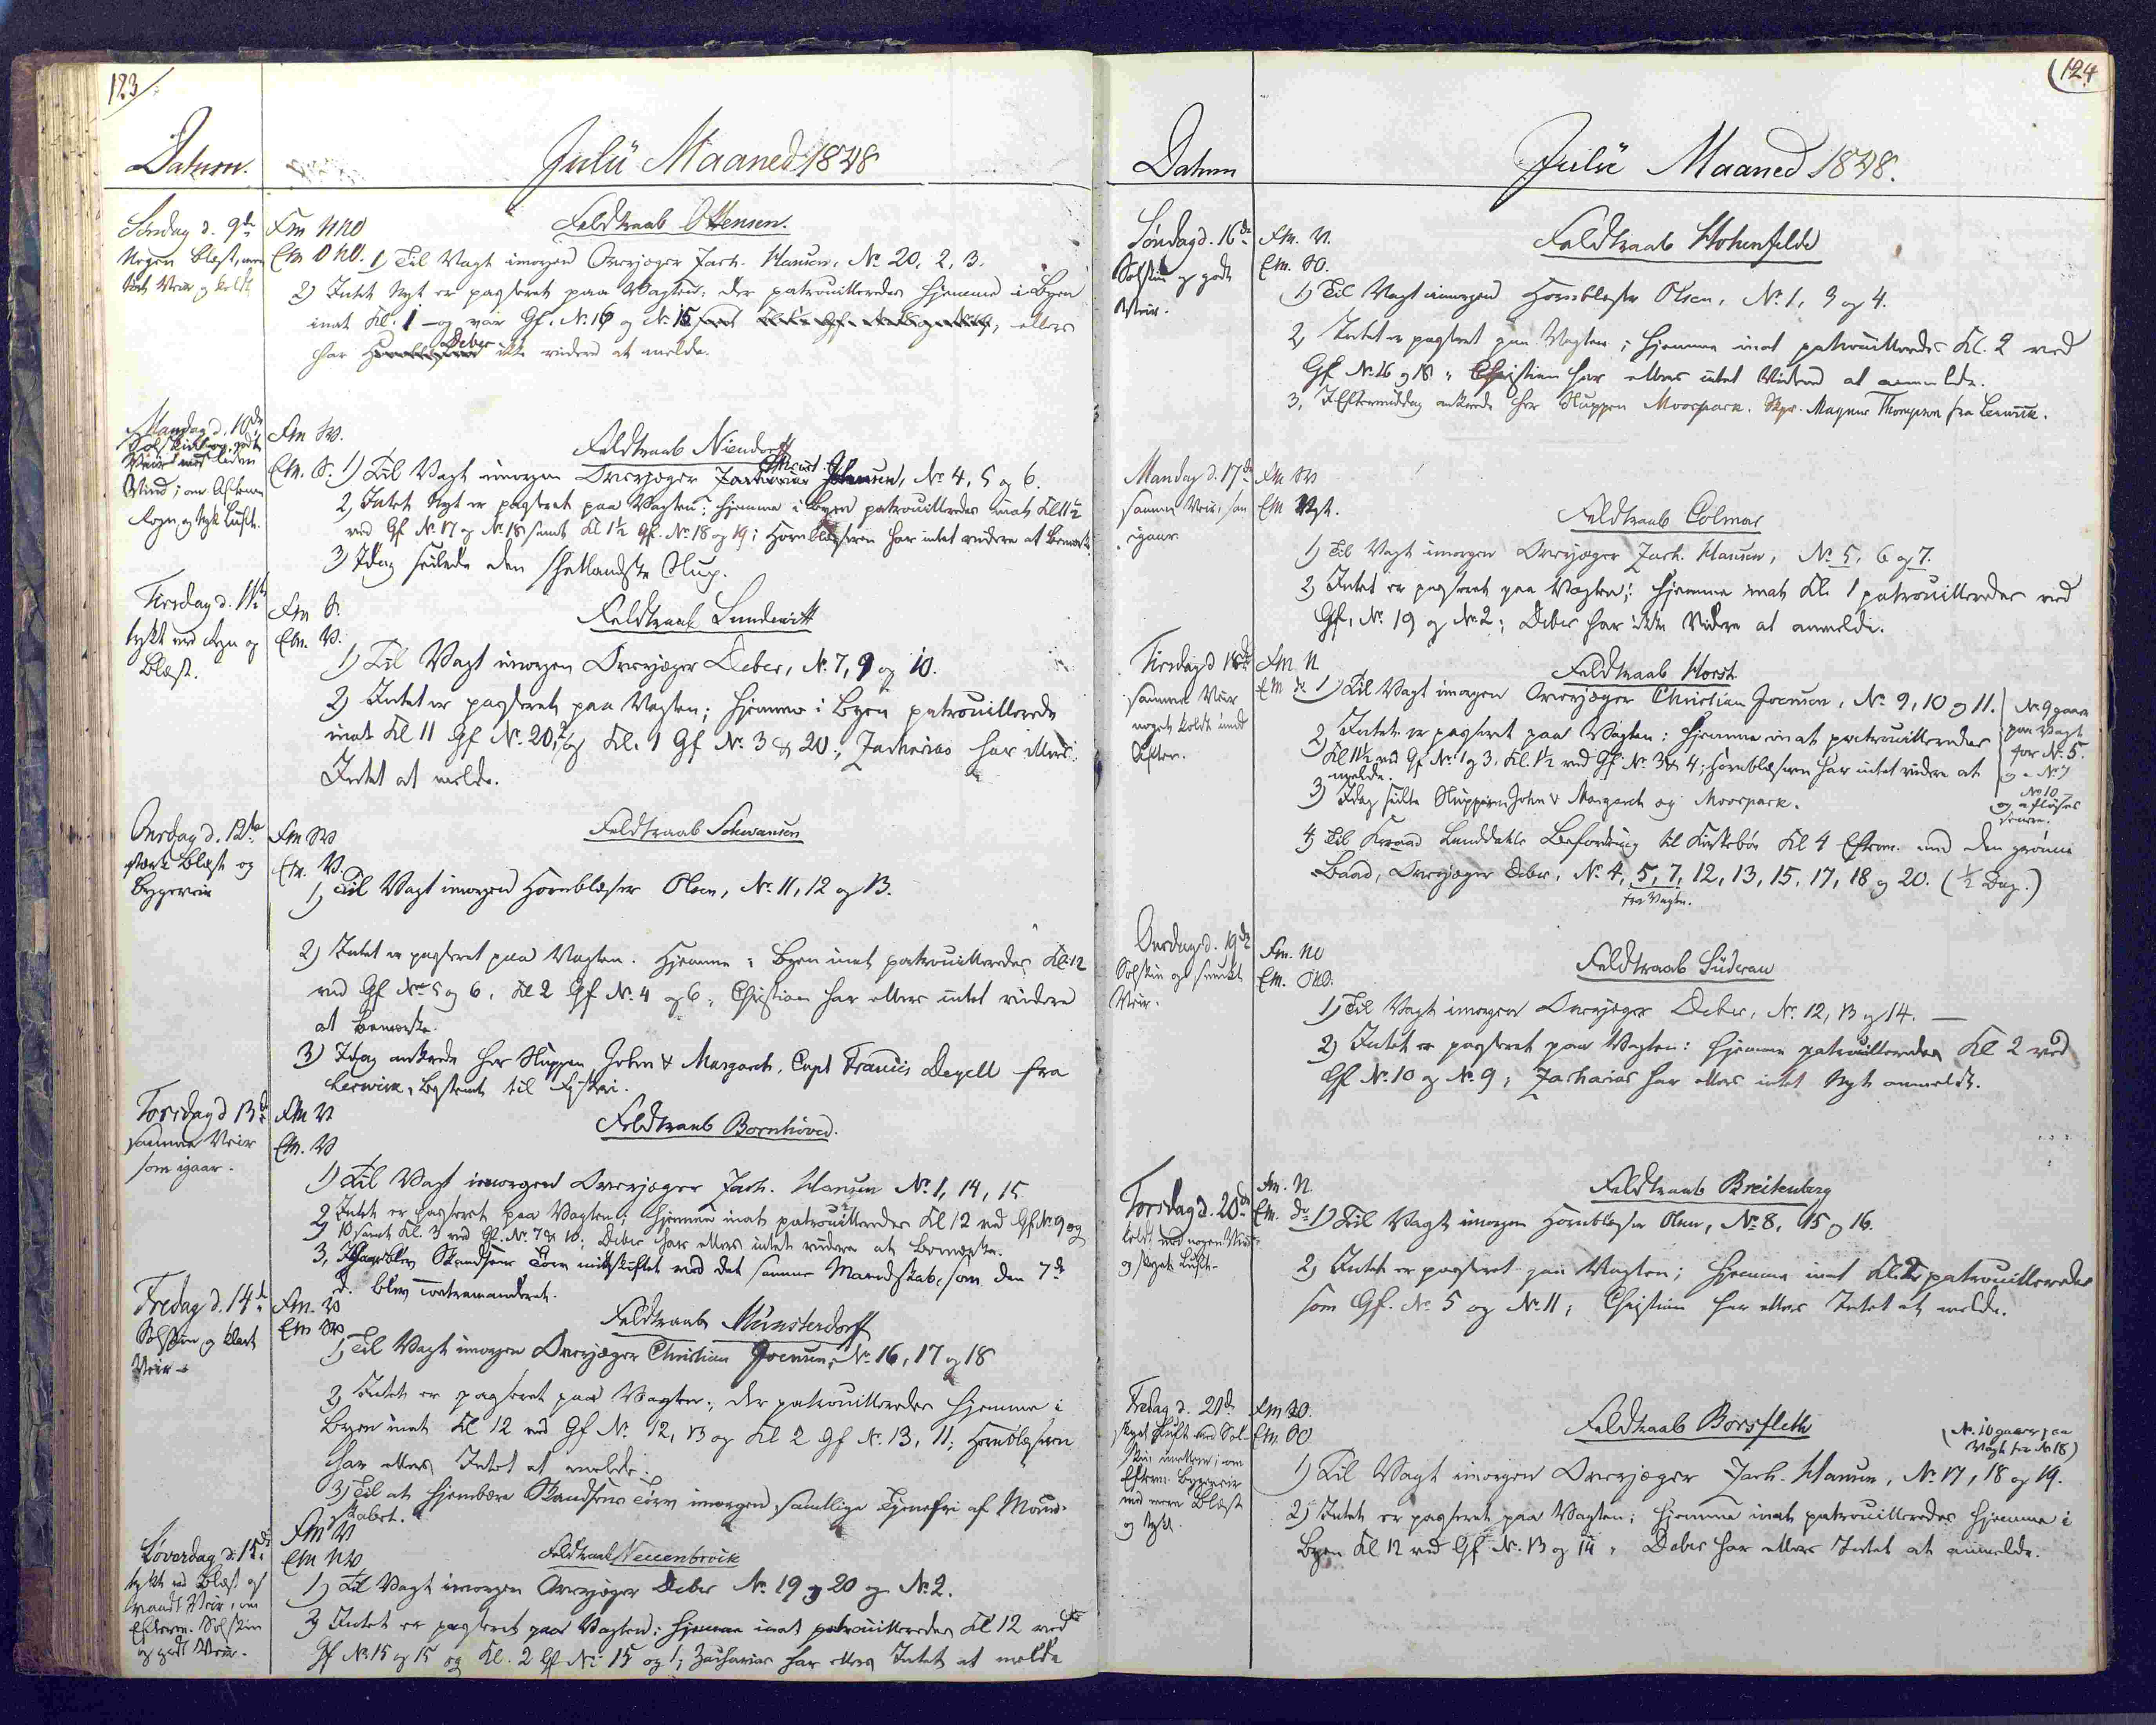 123
Datum.
Julii Maaned 1848
Søndag d. 9de
Nogen Blæst, men
tørt Veir og koldt
Fm NNO
Em ONO.
Feldtraab Ottensen.
1) Til Vagt imorgen Overjæger Zach. Hansen, No 20, 2, 3.
2) Intet Nyt er passeret paa Vagten; der patrouilleredes hjemme i Byen
inat Kl. 1 og var Gf. No. 16 og No 15, ellers
har Debes ikke videre at melde.
Mandag d. 10de
Solskin og godt
Veir med liden
Vind; om Aftenen
Regn og tyk Luft.
Fm SV.
Em. S.
Feldtraab Niendorff
1) Til Vagt imorgen Overjæger Christ. Joensen, No 4, 5 og 6.
2, Intet Nyt er passeret paa Vagten; hjemme i Byen patrouilleredes inat Kl 11½
ved Gf No 17 og No 18 samt Kl 1½ Gf. No 18 og 19; Hornblæseren har intet videre at bemærke.
3) Idag seilede den shetlandske Slup.
Tirsdag d. 11te
tykt med Regn og
Blæst.
Fm S.
Em. V.
Feldtraab Lundewitt
1) Til Vagt imorgen Overjæger Debes, No. 7, 9 og 10.
2) Intet er passeret paa Vagten; hjemme i Byen patrouilleredes
inat Kl 11 Gf No. 20, 2 og Kl. 1 Gf No. 3 & 20; Zacharias har ellers
Intet at melde.
Onsdag d. 12te
stærk Blæst og
Bygeveir
Fm SV
Em. V.
Feldtraab Schwansen
1) Til Vagt imorgen Hornblæser Olsen, No. 11, 12 og 13.
2) Intet er passeret paa Vagten. Hjemme i Byen inat patrouilleredes Kl. 12
ved Gf No 5 og 6, Kl 2 Gf No. 4 og 6; Christian har ellers intet videre
at bemærke.
3) Idag ankrede her Sluppen John & Margareth, Capt Francis Deyell fra
Lerwick, bestemt til Fiskeri.
Torsdag d 13de
samme Veir
som igaar.
Fm V
Em. V
Feldtraab Bornhöved.
1) Til Vagt imorgen Overjæger Zach. Hansen No. 1, 14, 15
2, Intet er passeret paa Vagten; hjemme inat patrouilleredes Kl 12 ved Gf No 9 og
10 samt Kl. 3 ved Gf. No. 7 & 10; Debes har ellers intet videre at bemærke.
3, Idag blev Skandsens Tørv indskiftet med det samme Mandskab, som den 7de
d. blev contramanderet.
Fredag d. 14de
Solskin og klart
Veir
Fm. V
Em SV
Feldtraab Münsterdorff
1) Til Vagt imorgen Overjæger Christian Joensen, No 16, 17 og 18
2) Intet er passeret paa Vagten; der patrouilleredes hjemme i
Byen inat Kl 12 ved Gf No. 12, 13 og Kl 2 Gf No. 13, 11; Hornblæseren
har ellers Intet at melde.
3) Til at hjembære Skandsens Tørv imorgen samtlige Tjenestfri af Mand-
skabet.
Løverdag d: 15de
tykt med Blæst og
vaadt Veir, om
Efterm. Solskin
og godt Veir.
Fm V
Em NV
Feldtraab Neuenbrock
1) Til Vagt imorgen Overjæger Debes No. 19 og 20 og No 2.
2) Intet er passeret paa Vagten: hjemme inat patrouilleredes Kl 12 ved
Gf No 15 og 15 og Kl. 2 Gf No 15 og 1; Zacharias har ellers Intet at melde
124
Datum
Julii Maaned 1848.
Søndag d. 16de
Solskin og godt
Veir.
Fm. V.
Em. SO.
Feldtraab Hohenfelde
1) Til Vagt imorgen Hornblæser Olsen, No. 1, 3 og 4.
2, Intet er passeret paa Vagten; hjemme inat patrouilleredes Kl. 2 ved
Gf No 16 og 18; Christian har ellers intet Videre at anmelde.
3, I Eftermiddag ankrede her Sluppen Moorpark. Skpr. Magnus Thompson fra Lerwick.
Mandag d. 17de
samme Veir, som
igaar
Fm SV
Em Vst.
Feldtraab Colmar
1) Til Vagt imorgen Overjæger Zach. Hansen, No. 5, 6 og 7.
2) Intet er passeret paa Vagten; hjemme inat Kl. 1 patrouilleredes ved
Gf, No. 19 og No. 2; Debes har ikke Videre at anmelde.
Tirsdag d 18de
samme Veir
noget koldt imod
Aften.
Fm N
Em do
Feldtraab Horst
1) Til Vagt imorgen Overjæger Christian Joensen, No. 9, 10 og 11.
No. 9 gaaer
paa Vagt
for No. 5.
og No 7
No 10
og afløses
senere.
2, Intet er passeret paa Vagten: hjemme inat patrouilleredes
Kl 11½ ved Gf No. 1 og 3, Kl. 1½ ved Gf No. 3 & 4; Hornblæseren har intet videre at
melde.
3) Idag seilte Slupperne John & Margareth og Moorpark.
4) Til Knraad Lunddahls Befordring til Kirkebøe Kl 4 Efterm. med den grønne
Baad, Overjæger Debes, No. 4, 5, 7, 12, 13, 15, 17, 18 og 20. (½ Dag.)
fra Vagten.
Onsdag d. 19de
Solskin og smukt
Veir.
Fm. NO
Em. ONO.
Feldtraab Süderau
1) Til Vagt imorgen Overjæger Debes, No. 12, 13 og 14.
2) Intet er passeret paa Vagten: hjemme patrouilleredes Kl 2 ved
Gf No. 10 og No. 9; Zacharias har ellers intet Nyt anmeldt.
Torsdag d. 20de
koldt med nogen Vind
og skyet Luft
Fm. N.
Em. do
Feldtraab Breitenberg
1) Til Vagt imorgen Hornblæser Olsen, No. 8, 15 og 16.
2) Intet er passeret paa Vagten; hjemme inat Kl. 2 patrouilleredes
som Gf. No. 5 og No 11; Christian har ellers Intet at melde.
Fredag d. 21de
skyet Luft med Sol-
skin imellem; om
Efterm. Bygeveir
med mere Blæst
og tykt.
Fm SO.
Em. SO
Feldtraab Borsfleth
(No. 10 gaaer paa
Vagt for No 18)
1) Til Vagt imorgen Overjæger Zach. Hansen, No. 17, 18 og 19.
2) Intet er passeret paa Vagten; hjemme inat patrouilleredes hjemme i
Byen Kl 12 ved Gf No. 13 og 14; Debes har ellers Intet at anmelde.